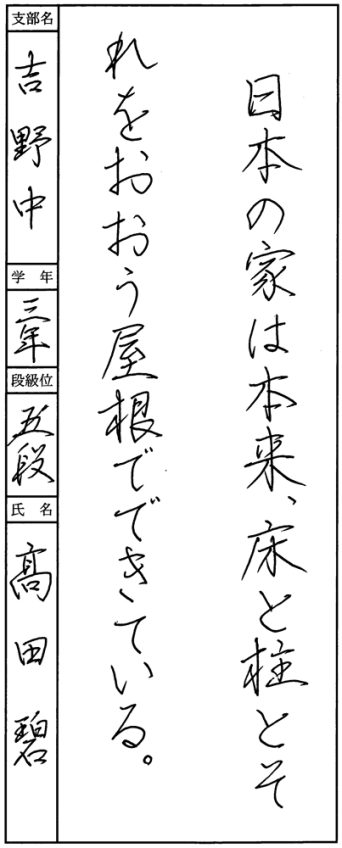 日本の家は本来、床と柱とそ
れをおおう屋根でできている。
支部名
吉野中
学年
三年
段級位
五段
氏名
髙田碧